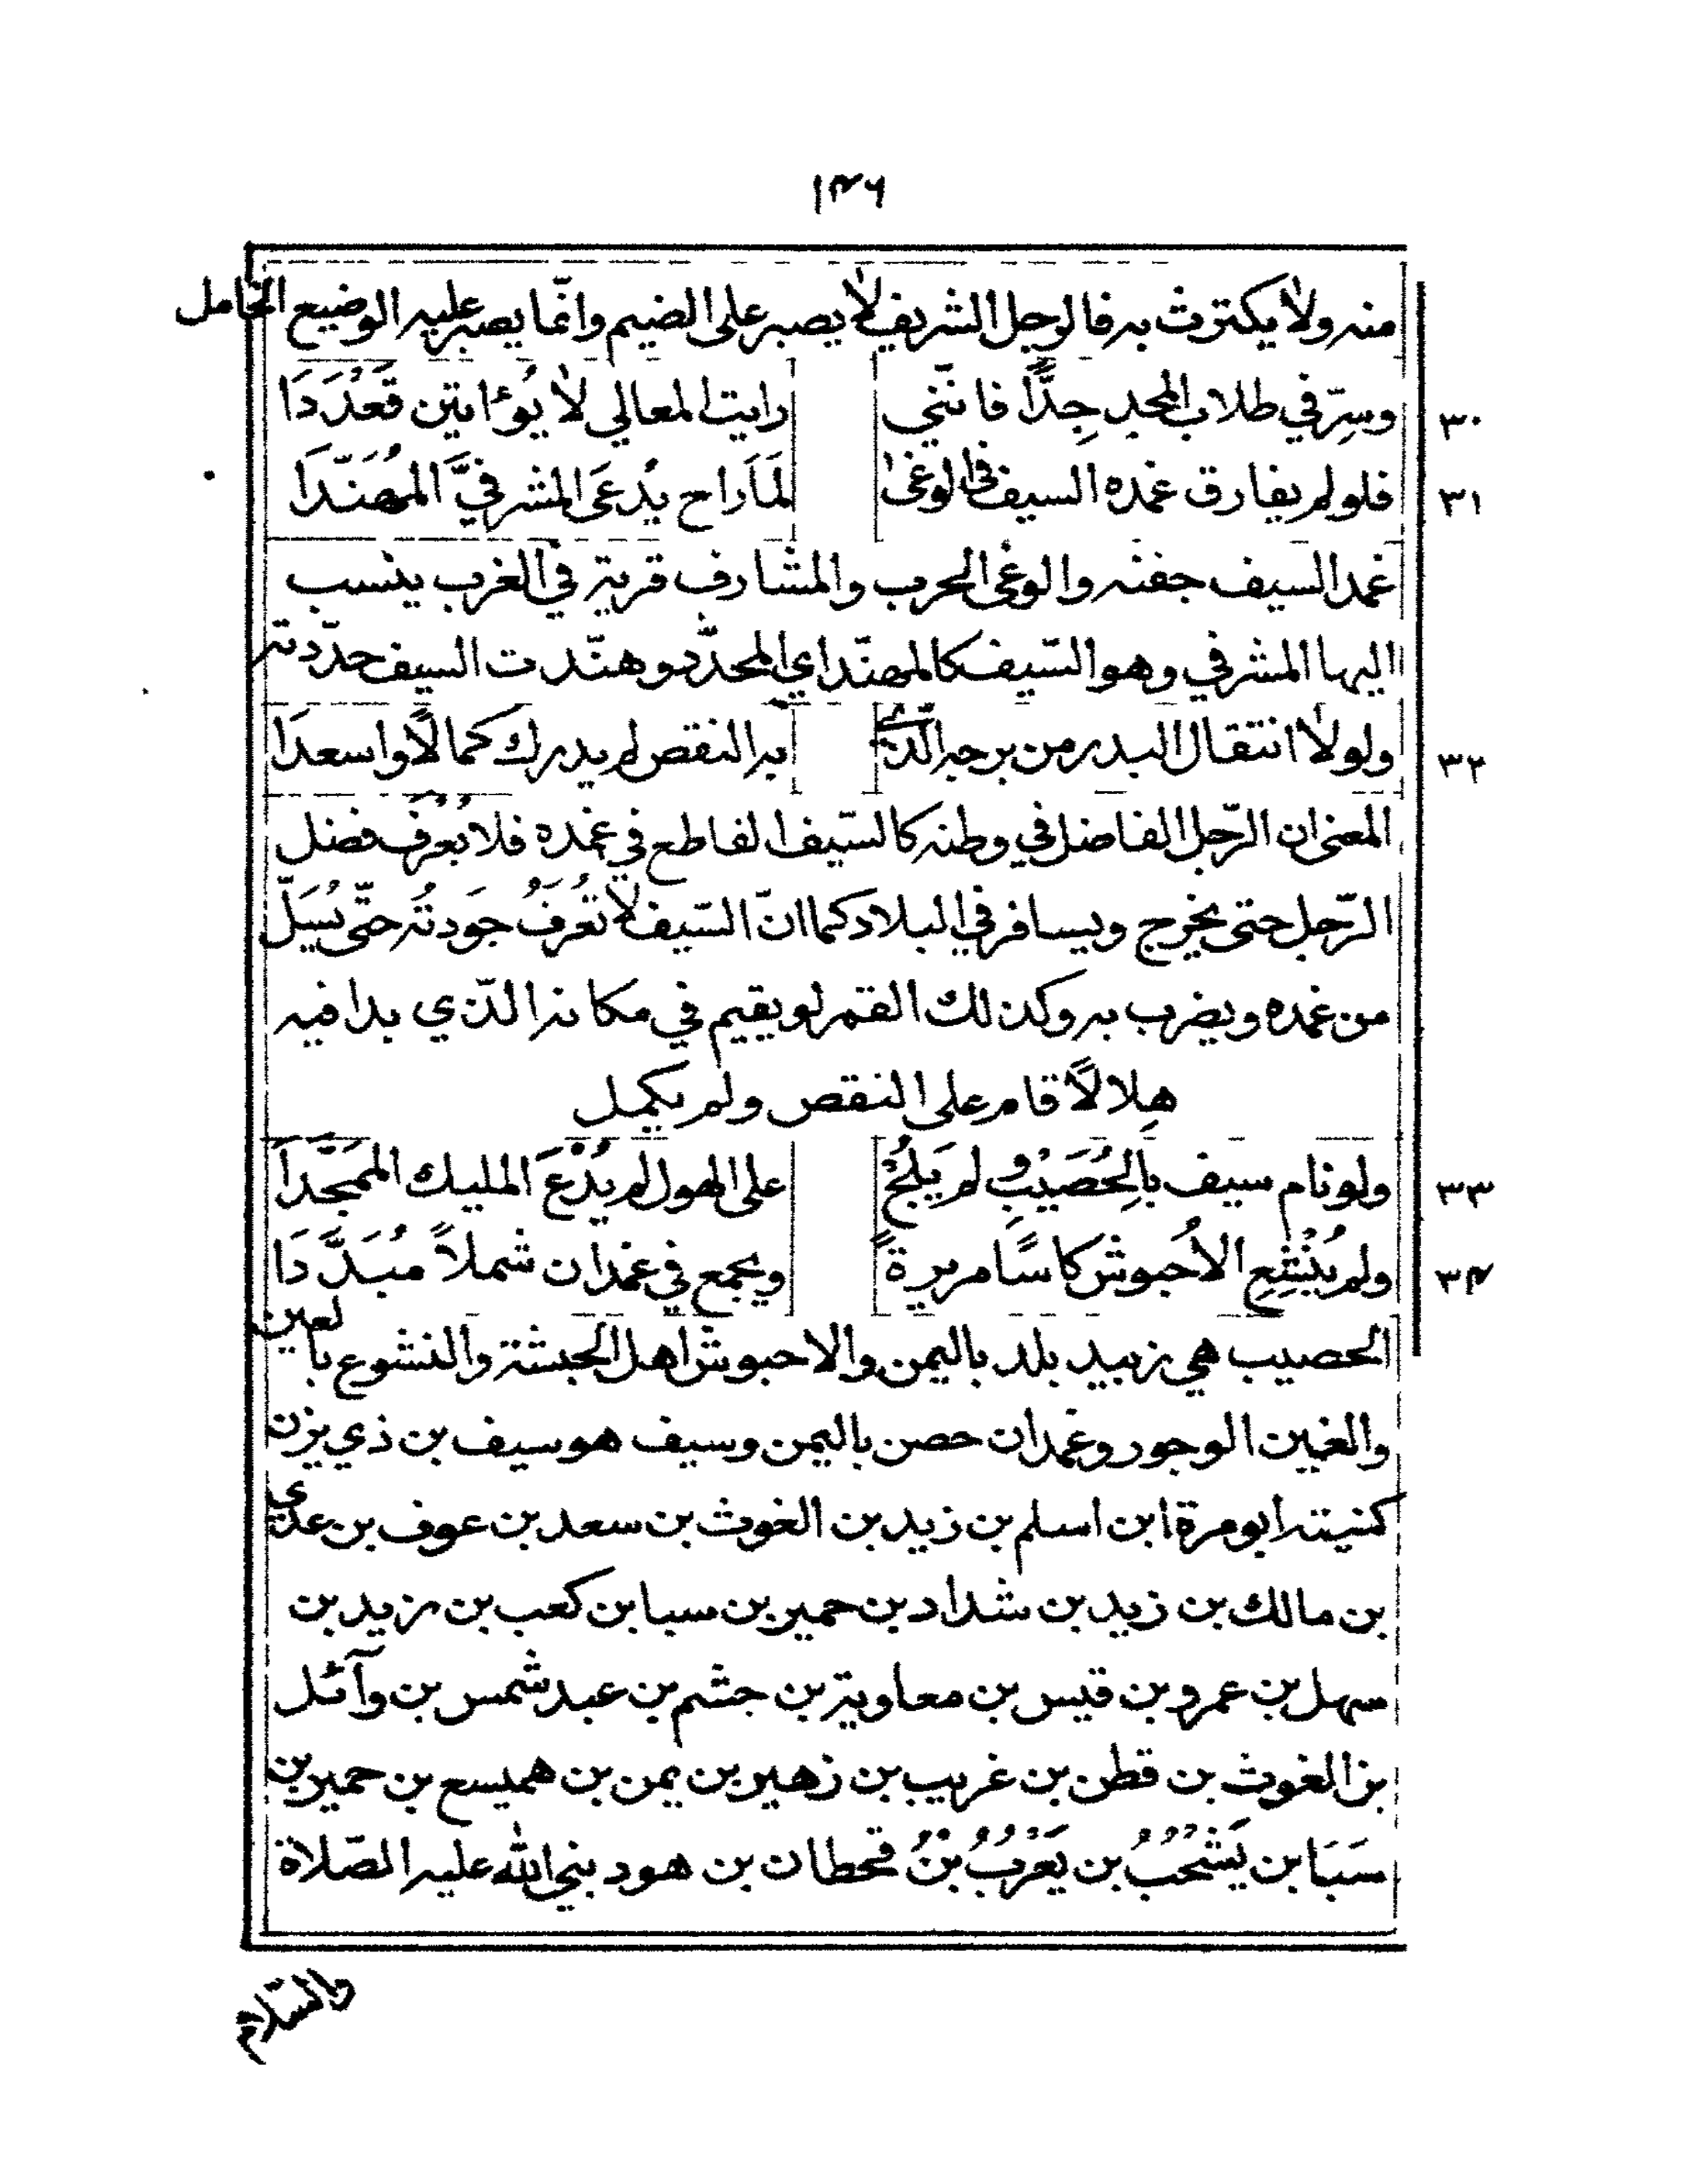 ١٤٦
منه ولا يكترث به فالرجل الشريف لا يصبر على الضيم وانّما يصبر عليه الوضيع الخامل
٣٠ وسِرّ في طلاب المجد جِدًّا فانّني رايت المعالي لا يُوءاتين قَعْدَدَا
٣١ فلو لم يفارق غمده السيف فى الوغىٰ لَمَا راح يُدعَى المشرفيَّ المُهَنّدَا
غمد السيف جفنه والوغى الحرب والمشارف قرية في الغرب ينسب
اليها المشرفي وهو السّيف كالمهنّد اي المحدّد وهنّدت السيف حدّدته
٣٢ ولولا انتقال البدر من برجه الّذي به النقص لم يدرك كمالًا واسعدَا
المعنى ان الرّجل الفاضل في وطنه كالسّيف القاطع في غمده فلا يُعْرَف فضل
الرّجل حتى يخرج ويسافر في البلاد كما انّ السّيف لا تُعْرَفُ جَودتُه حتّى يُسَلّ
من غمده ويضرب به وكذلك القمر لو يقيم في مكانه الّذي بدا فيه
هِلالًا قام على النقص ولم يكمل
٣٣ ولو نام سيف بالحُصَيْبِ ولم يَلُجْ على الهول لم يُدْعَ المليك الممجَّدَا
٣٤ ولم يُنْشِعِ الاُحبوش كاسًا مريرةً ويجمع في غمدان شملاً مُبَدَّدَا
الحصيب هي زبيد بلد باليمن والاحبوش اهل الحبشة والنشوع بالعين
والغين الوجور وغمدان حصن باليمن وسيف هو سيف بن ذي يزن
كنيته ابو مرة ابن اسلم بن زيد بن الغوث بن سعد بن عوف بن عدي
بن مالك بن زيد بن شداد بن حمير بن سبا بن كعب بن زيد بن
سهل بن عمرو بن قيس بن معاوية بن جشم بن عبد شمس بن وآئل
بن الغوث بن قطن بن غريب بن زهير بن يمن بن هميسع بن حمير بن
سَبَا بن يَشْحُبُ بن يَعْرُبُ بْنُ قحطان بن هود بني الله عليه الصّلاة
والسّلام